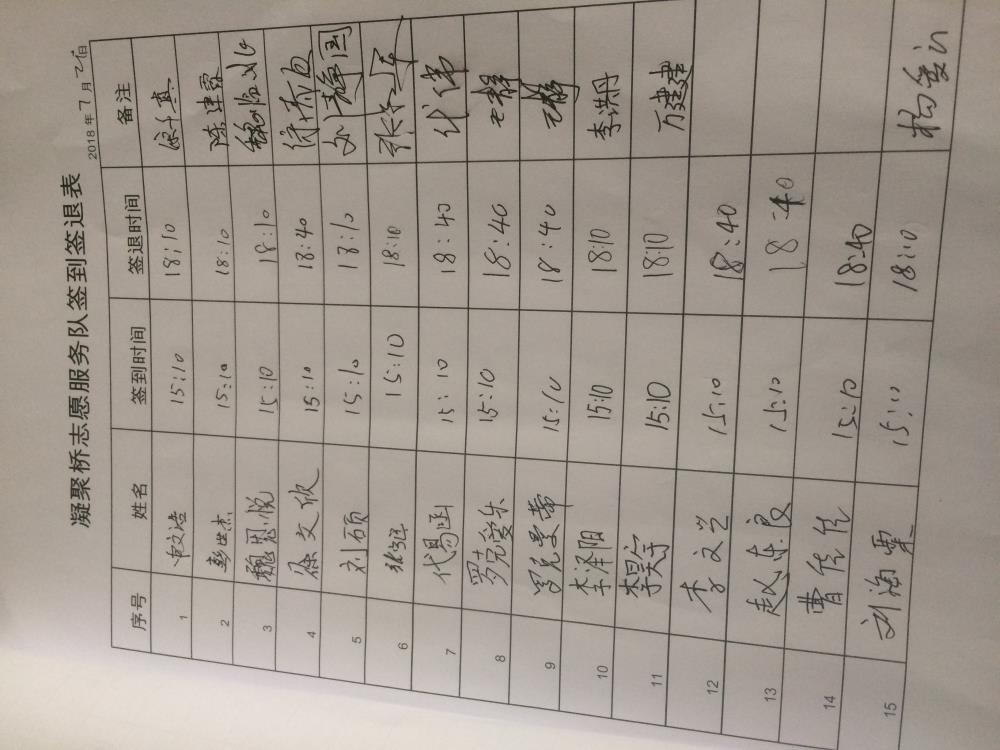 凝聚桥志愿服务队签到签退表
2018年7月
序号 姓名 签到时间 签退时间 备注
1 15:10 18:10
2 彭世杰 15:10 18:10 陈建霖
3 魏思悦 15:10 18:10
4 徐文欣 15:10 18:40
5 刘硕 15:10 18:10 刘静国
6 15:10 18:10
7 代易涵 15:10 18:40 代伟
8 罗克爱乐 15:10 18:40
9 罗克曼蒂 15:10 18:40
10 李泽阳 15:10 18:10 李洪丹
11 李昊宇 15:10 18:10 万建建
12 李文兰 15:10 18:40
13 赵东良 15:10 18:40
14 曹佳佳 15:10 18:40
15 刘海霖 15:10 18:10